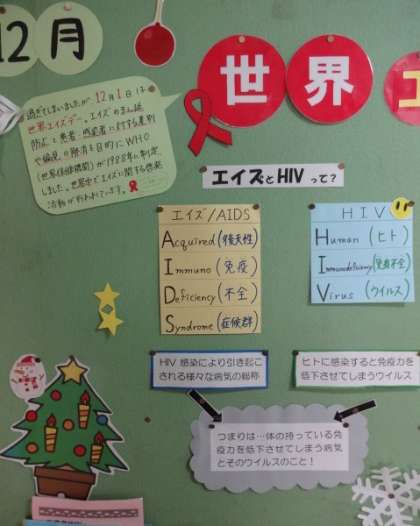 12月
世界エ
過ぎてしまいましたが 12月1日は
世界エイズデー。エイズのまん延
防止と患者・感染者に対する差別
や偏見の解消を目的にWHO
(世界保健機関)が1988年に制定
しました。世界中でエイズに関する啓発
活動が行われています。
エイズとHIV って?
エイズ/AIDS
Acquired (後天性)
Immuno (免疫)
Deficiency (不全)
Syndrome (症候群)
HIV
Human (ヒト)
Immunodeficiency (免疫不全)
Virus (ウイルス)
HIV 感染により引き起こ
される様々な病気の総称
ヒトに感染すると免疫力を
低下させてしまうウイルス
つまりは…体の持っている免
疫力を低下させてしまう病気
とそのウイルスのこと!